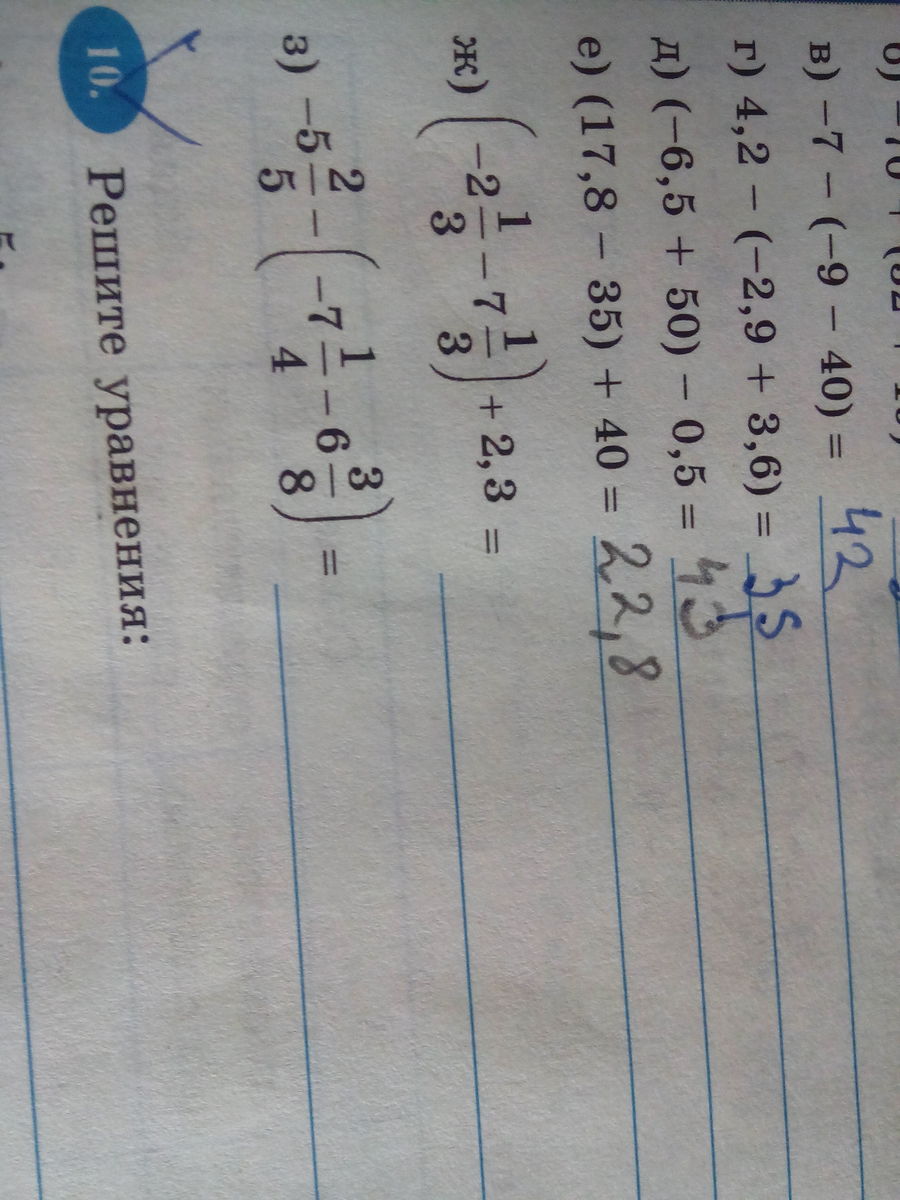 в) −7 − (−9 − 40) = 42
г) 4,2 − (−2,9 + 3,6) = 3,5
д) (−6,5 + 50) − 0,5 = 43
е) (17,8 − 35) + 40 = 22,8
ж) (−2 1/3 − 7 1/3) + 2,3 =
з) −5 2/5 − (−7 1/4 − 6 3/8) =
10. Решите уравнения: